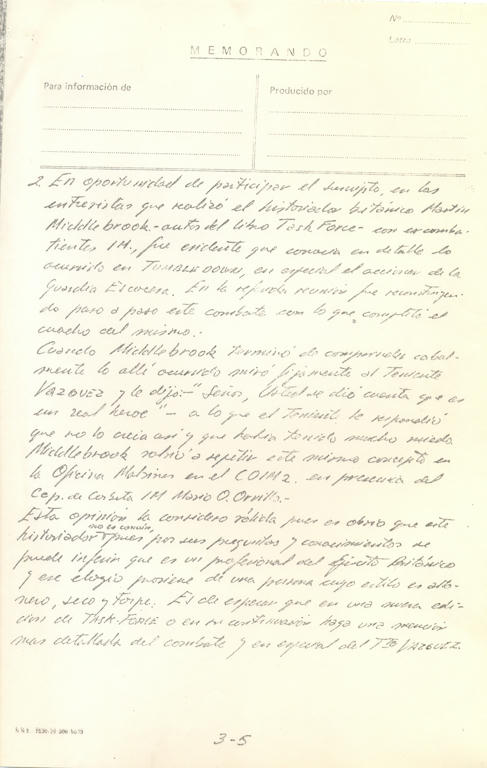 Nº
Letra
MEMORANDO
Para información de
Producido por
2. En oportunidad de participar el suscripto, en las
entrevistas que realizó el historiador británico Martin
Middlebrook - autor del libro Task Force - con ex comba-
tientes IM., fue evidente que conocía en detalle lo
ocurrido en TUMBLEDOWN, en especial el accionar de la
Guardia Escocesa. En la referida reunión fue reconstruyen-
do paso a paso este combate con lo que completó el
cuadro del mismo.-
Cuando Middlebrook terminó de comprender cabal-
mente lo allí ocurrido miró fijamente al Teniente
VAZQUEZ y le dijo:-"Señor, Usted se dió cuenta que es
un real héroe"- a lo que el Teniente le respondió
que no lo creía así y que había tenido mucho miedo
Middlebrook volvió a repetir este mismo concepto en
la Oficina Malvinas en el COIM2. en presencia del
Cap. de Corbeta IM Mario O.
Esta opinión la considero válida pues es obvio que este
historiador no es común, pues por sus preguntas y conocimientos se
puede inferir que es un profesional del Ejército Británico
y ese elogio proviene de una persona cuyo estilo es alta-
nero, seco y torpe. Es de esperar que en una nueva edi-
ción de TASK-FORCE o en su continuación haga una mención
mas detallada del combate y en especial del Tte VAZQUEZ.
3-5